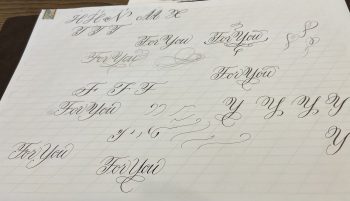 H H N M X
F F F For You For You
For You
For You
F F F
For You Y Y Y Y
Y
For You For You